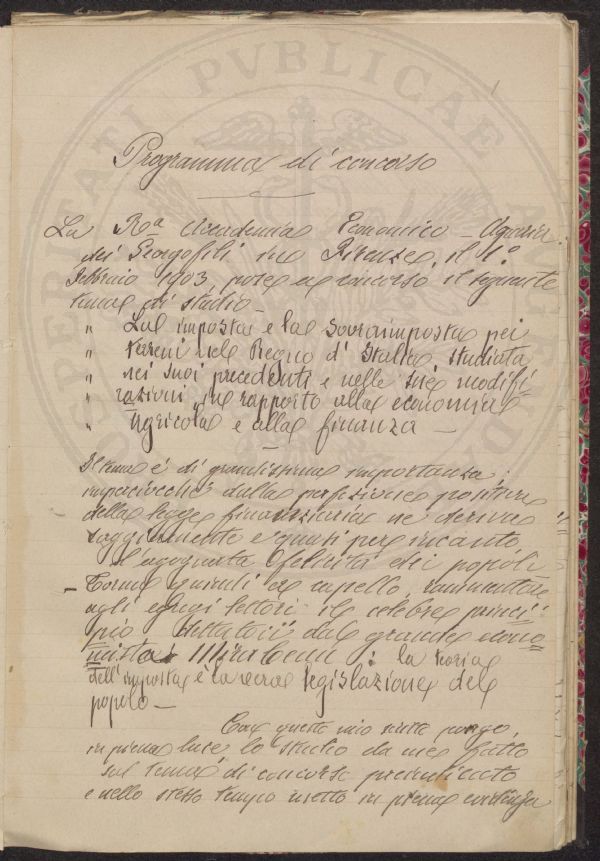 1
Programma di concorso
La Ra Accademia Economico - Agraria
dei Georgofili in Firenze, il 1°
Febbraio 1903 pose a concorso il seguente
tema di studio -
" La imposta e la sovraimposta pei
" terreni nel Regno d'Italia, studiata
" nei suoi precedenti e nelle sue modifi
" cazioni, in rapporto alla economia
" Agricola e alla finanza -
Il tema è di grandissima importanza,
imperciocchè dalla perfezione positiva
della legge finanziaria ne deriva
saggiamente e quasi per incanto
l'agognata felicità dei popoli
- Torna quindi a capello rammentare
agli egregi lettori il celebre princi=
pio dettatoci dal grande econo
mista Mirabeau : la teoria
dell'imposta è la vera legislazione del
popolo -
Con questo mio scritto pongo,
in piena luce lo studio da me fatto
sul tema di concorso preindicato
e nello stesso tempo metto in piena evidenza
PVBLICAE